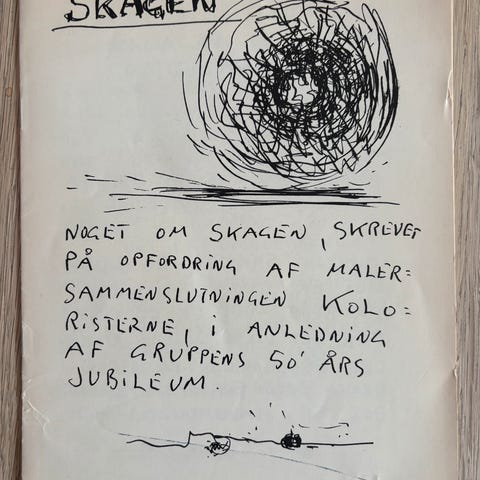 SKAGEN
NOGET OM SKAGEN, SKREVET
PÅ OPFORDRING AF MALER=
SAMMENSLUTNINGEN KOLO=
RISTERNE, I ANLEDNING
AF GRUPPENS 50' ÅRS
JUBILEUM.